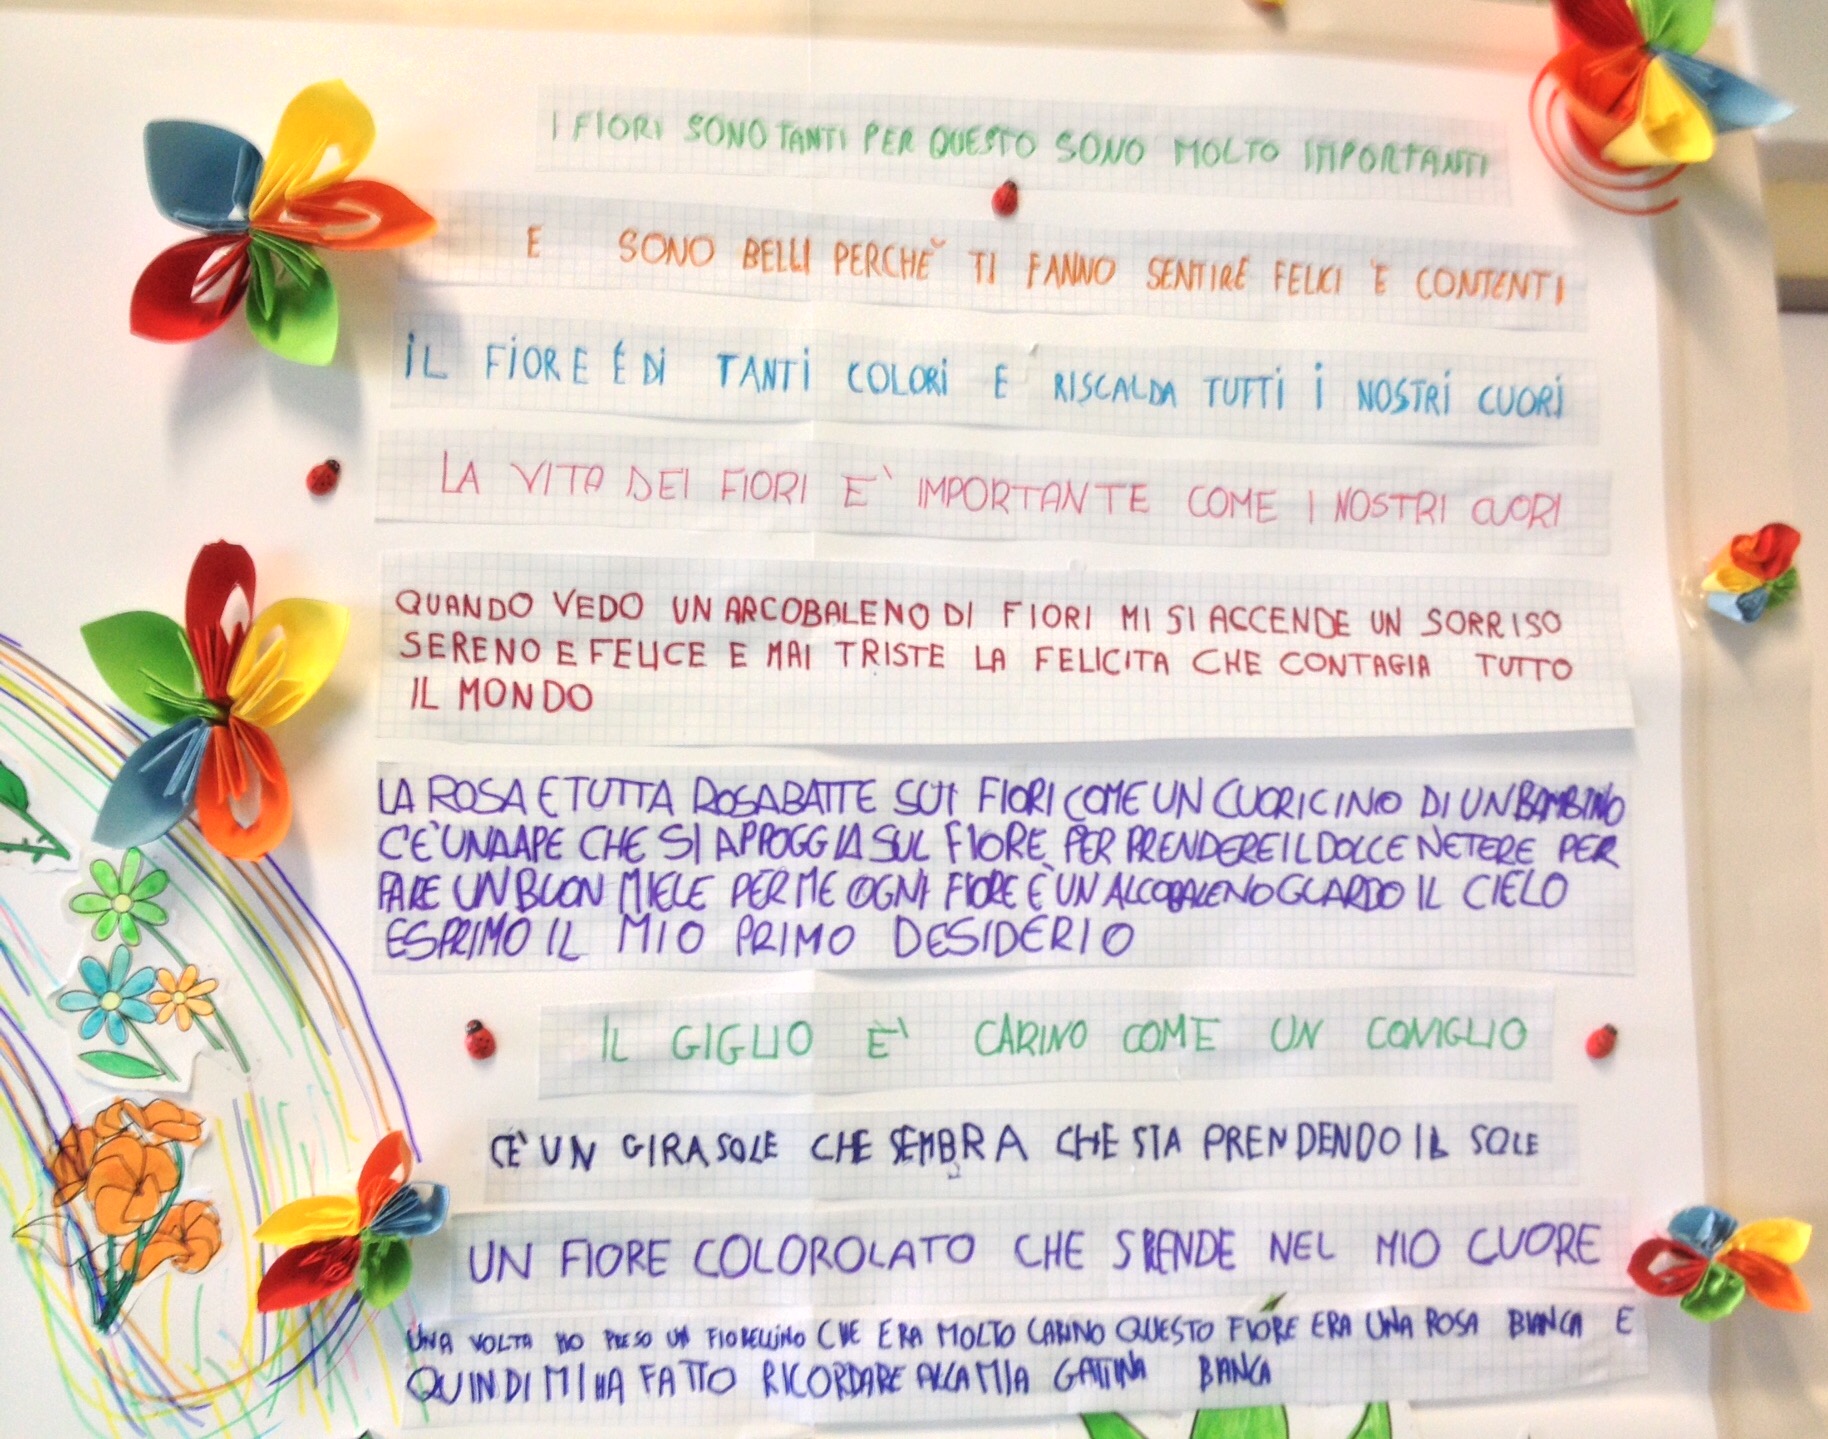 I FIORI SONO TANTI PER QUESTO SONO MOLTO IMPORTANTI
E SONO BELLI PERCHĔ TI FANNO SENTIRE FELICI E CONTENTI
IL FIORE É DI TANTI COLORI E RISCALDA TUTTI I NOSTRI CUORI
LA VITA DEI FIORI E' IMPORTANTE COME I NOSTRI CUORI
QUANDO VEDO UN ARCOBALENO DI FIORI MI SI ACCENDE UN SORRISO
SERENO E FELICE E MAI TRISTE LA FELICITA CHE CONTAGIA TUTTO
IL MONDO
LA ROSA E TUTTA ROSA BATTE SUI FIORI COME UN CUORICINO DI UN BAMBINO
C'È UNA APE CHE SI APPOGGIA SUL FIORE PER PRENDERE IL DOLCE NETERE PER
FARE UN BUON MIELE PER ME OGNI FIORE È UN ALCOBALENO GUARDO IL CIELO
ESPRIMO IL MIO PRIMO DESIDERIO
IL GIGLIO È' CARINO COME UN CONIGLIO
C'E' UN GIRASOLE CHE SEMBRA CHE STA PRENDENDO IL SOLE
UN FIORE COLOROLATO CHE SPENDE NEL MIO CUORE
UNA VOLTA HO PRESO UN FIORELLINO CHE ERA MOLTO CARINO QUESTO FIORE ERA UNA ROSA BIANCA E
QUINDI MI HA FATTO RICORDARE ALLA MIA GATTINA BIANCA